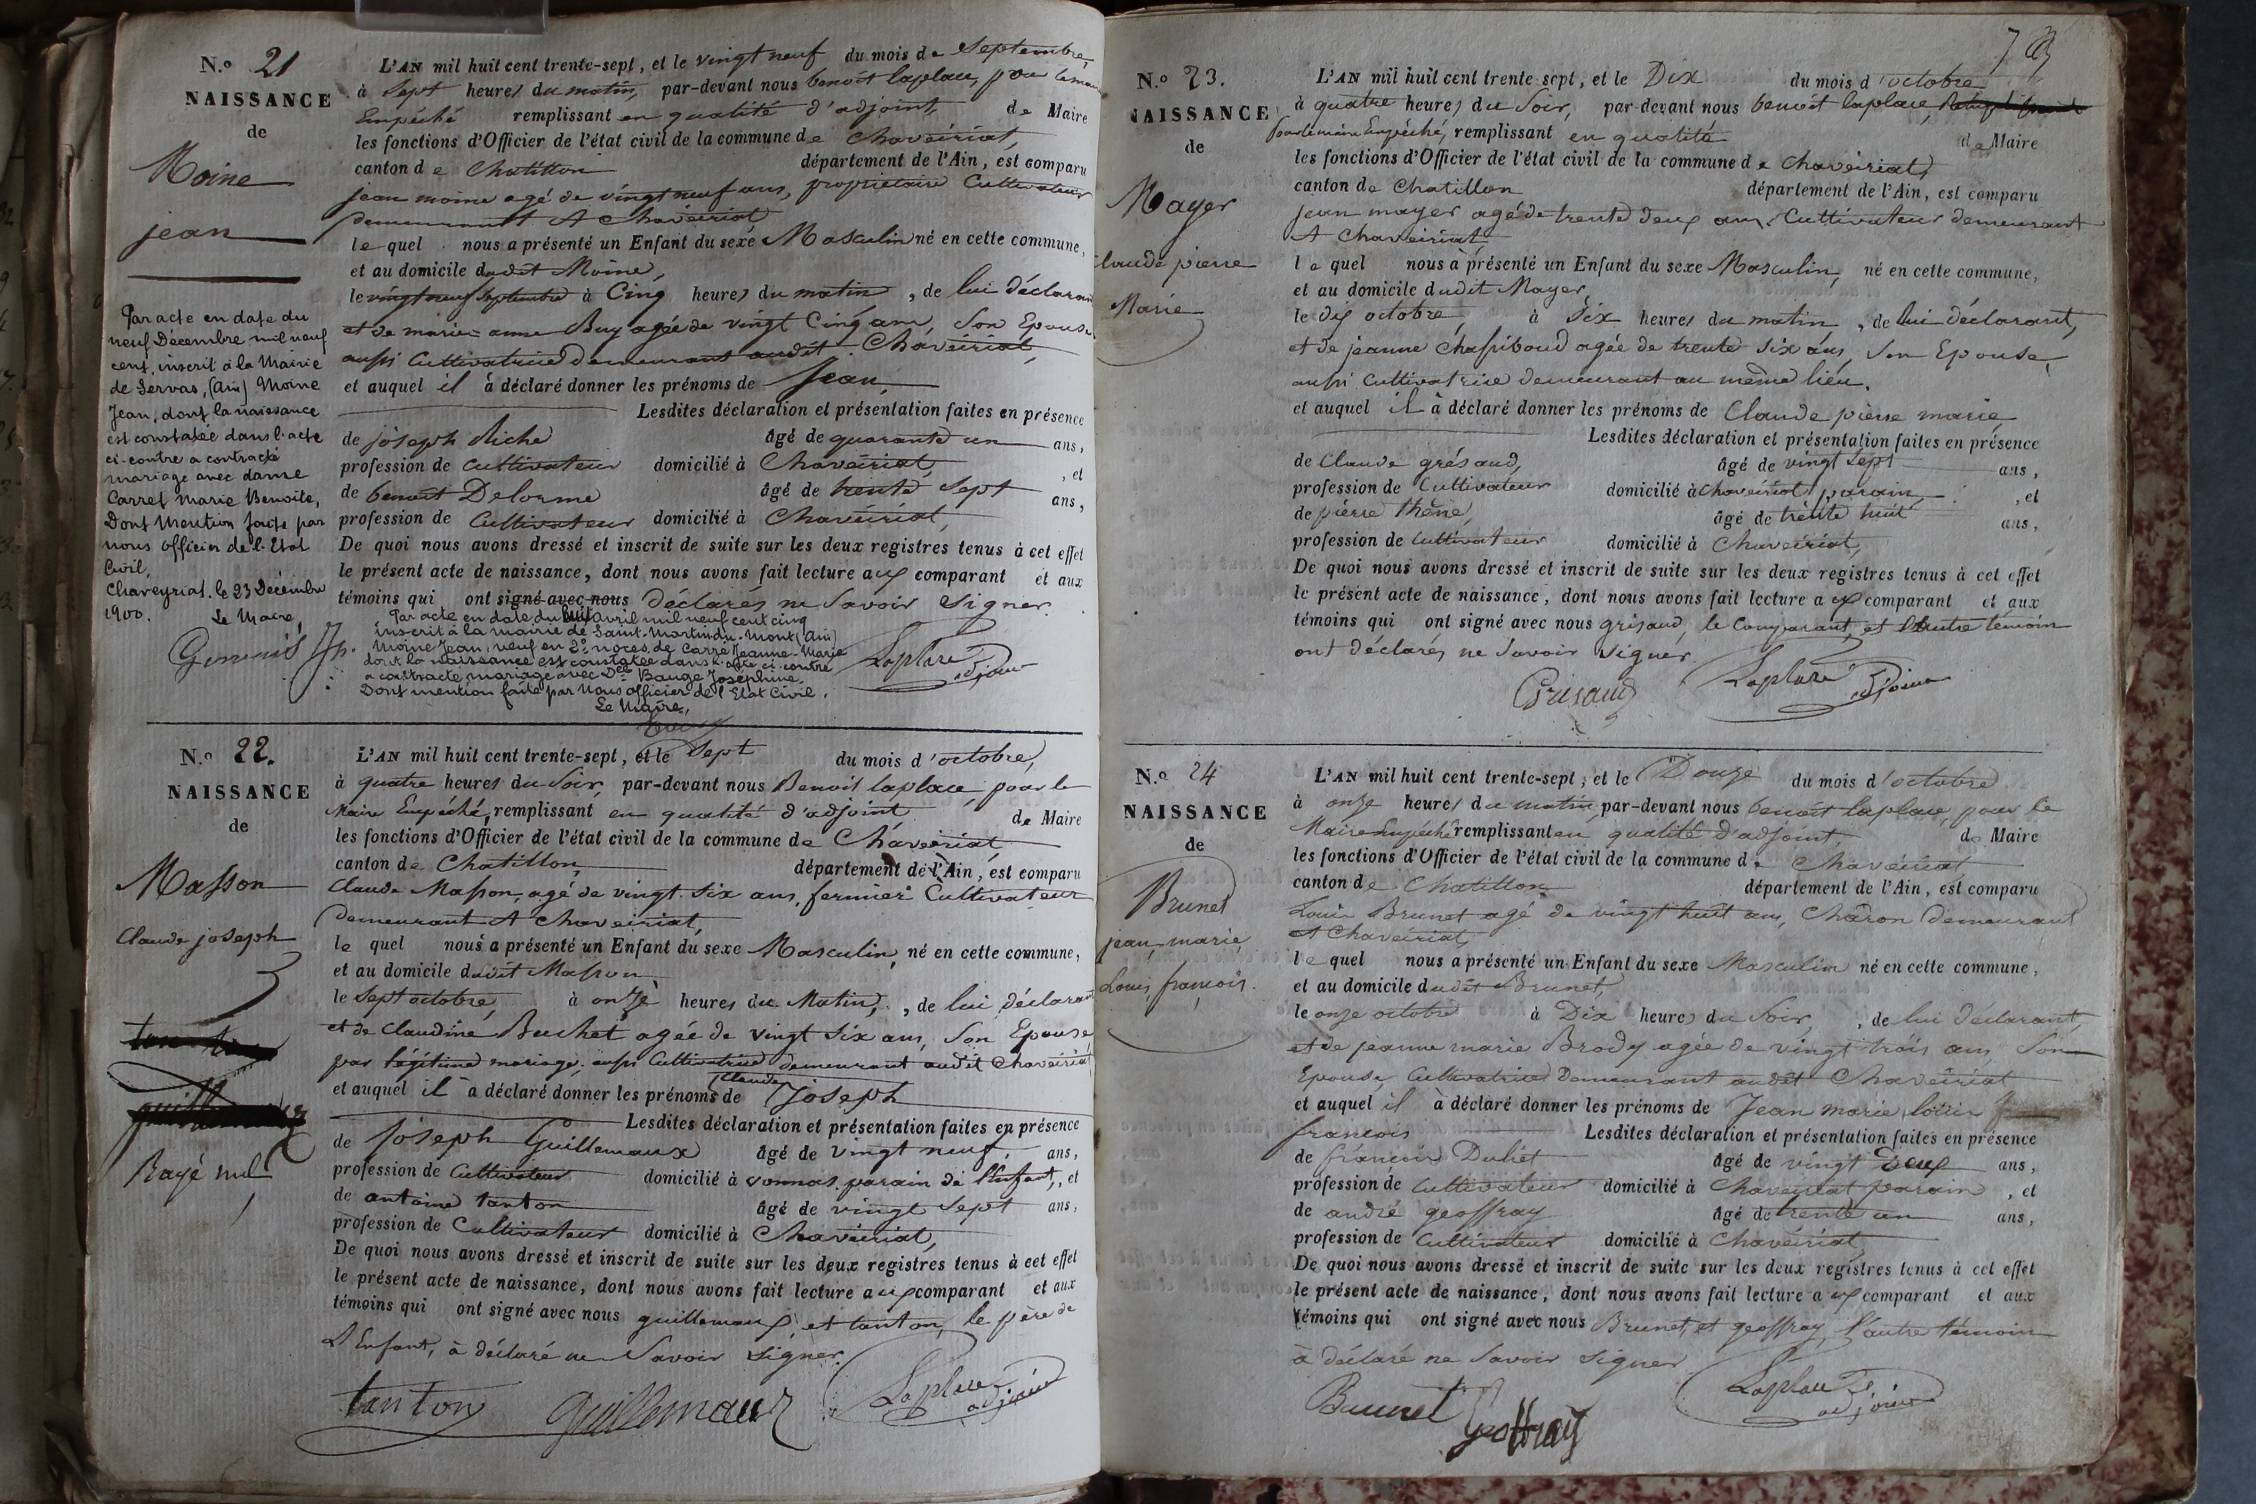 N.o 21
NAISSANCE
de
Moine
jean
Par acte en date du
neuf Décembre mil neuf
cent, inscrit à la Mairie
de Servas, (Ain) Moine
Jean, dont la naissance
est constatée dans l'acte
ci-contre a contracté
mariage avec dame
Carrel Marie Benoite,
Dont Mention faite par
nous officier de l'Etat
Civil,
Chaveyriat. le 23 Décembre
1900. Le Maire,
L'AN mil huit cent trente-sept, et le vingt neuf du mois de septembre,
à sept heures du matin, par-devant nous benoît laplace, pour le maire
Empéché remplissant en qualité d'adjoint, de Maire
les fonctions d'Officier de l'état civil de la commune de Chaveiriat,
canton de Chatillon département de l'Ain, est comparu
jean moine agé de vingt neuf ans, propriétaire Cultivateur
demeurant A Chaveiriat
le quel nous a présenté un Enfant du sexe Masculin né en cette commune,
et au domicile dudit Moine,
le vingt neuf septembre à Cinq heures du matin, de lui déclarant
et de marie anne Buy agée de vingt Cinq ans, Son Epouse
aussi Cultivatrice demeurant audit Chaveiriat,
et auquel il à déclaré donner les prénoms de Jean,
Lesdites déclaration et présentation faites en présence
de joseph Riche âgé de quarante un ans,
profession de cultivateur domicilié à Chaveiriat, et
de benoit Delorme âgé de trente sept ans,
profession de Cultivateur domicilié à Chaveiriat,
De quoi nous avons dressé et inscrit de suite sur les deux registres tenus à cet effet
le présent acte de naissance, dont nous avons fait lecture aux comparant et aux
témoins qui ont signé avec nous déclarés ne Savoir Signer.
Par acte en date du huit avril mil neuf cent cinq
inscrit à la mairie de Saint-Martin du-Mont (Ain)
Moine Jean, veuf en 2es noces de Carré Jeanne-Marie
dont la naissance est constatée dans l'acte ci-contre
a contracté mariage avec Dlle Bauge Joséphine.
Dont mention faite par Nous officier de l'Etat Civil.
Le Maire,
Laplace
adjoint
N.o 22.
NAISSANCE
de
Masson
Claude joseph
Rayé nul
L'AN mil huit cent trente-sept, et le sept du mois d'octobre,
à quatre heures du Soir, par-devant nous Benoit laplace, pour le
Maire Empéché, remplissant en qualité d'adjoint de Maire
les fonctions d'Officier de l'état civil de la commune de Chaveiriat
canton de Chatillon, département de l'Ain, est comparu
Claude Masson, agé de vingt six ans, fermier Cultivateur
demeurant A Chaveiriat,
le quel nous a présenté un Enfant du sexe Masculin, né en cette commune,
et au domicile dudit Masson
le sept octobre, à onze heures du Matin, de lui déclarant
et de Claudine Buchet agée de vingt six ans, Son Epouse
par légitime mariage, aussi Cultivatrice demeurant audit Chaveiriat
et auquel il à déclaré donner les prénoms de Claude Joseph
Lesdites déclaration et présentation faites en présence
de joseph Guillemaux âgé de vingt neuf, ans,
profession de Cultivateur domicilié à vonnas parain de l'Enfant, et
de antoine tanton âgé de vingt sept ans,
profession de Cultivateur domicilié à Chaveiriat,
De quoi nous avons dressé et inscrit de suite sur les deux registres tenus à cet effet
le présent acte de naissance, dont nous avons fait lecture aux comparant et aux
témoins qui ont signé avec nous guillemaux, et tanton, le père de
L'Enfant, à déclaré ne Savoir signer.
tanton guillemaux Laplace
adjoint
N.o 23.
NAISSANCE
de
Mayer
Claude pierre
Marie
L'AN mil huit cent trente sept, et le Dix du mois d'octobre
à quatre heures du Soir, par-devant nous benoit laplace,
Pour le maire Empéché, remplissant en qualité de Maire
les fonctions d'Officier de l'état civil de la commune de Chaveiriat,
canton de Chatillon département de l'Ain, est comparu
jean mayer agé de trente deux ans, Cultivateur demeurant
A Chaveiriat
le quel nous à présenté un Enfant du sexe Masculin, né en cette commune,
et au domicile dudit Mayer,
le dix octobre, à Six heures du matin, de lui déclarant,
et de jeanne Chassiboud agée de trente six ans, Son Epouse,
aussi Cultivatrice demeurant au même lieu,
et auquel il à déclaré donner les prénoms de Claude pierre marie
Lesdites déclaration et présentation faites en présence
de Claude grésaud, âgé de vingt sept ans,
profession de Cultivateur domicilié à Chaveiriat parain, et
de pierre thène, âgé de trente huit ans,
profession de Cultivateur domicilié à Chaveiriat,
De quoi nous avons dressé et inscrit de suite sur les deux registres tenus à cet effet
le présent acte de naissance, dont nous avons fait lecture aux comparant et aux
témoins qui ont signé avec nous grisaud, le Comparant, et l'autre témoin
ont déclarés ne Savoir signer.
Grisaud Laplace
adjoint
N.o 24
NAISSANCE
de
Brunet
jean, marie
Louis, françois.
L'AN mil huit cent trente-sept, et le Douze du mois d'octobre
à onze heures du matin, par-devant nous benoît laplace, pour le
Maire Empéché remplissant en qualité d'adjoint, de Maire
les fonctions d'Officier de l'état civil de la commune de Chaveiriat
canton de Chatillon département de l'Ain, est comparu
Louis Brunet agé de vingt huit ans, Charon demeurant
A Chaveiriat,
le quel nous a présenté un Enfant du sexe Masculin né en cette commune,
et au domicile dudit Brunet,
le onze octobre à Dix heures du Soir, de lui déclarant,
et de jeanne marie Brody agée de vingt trois ans, Son
Epouse, Cultivatrice Demeurant audit Chaveiriat
et auquel il à déclaré donner les prénoms de Jean marie louis
françois Lesdites déclaration et présentation faites en présence
de françois Duliet âgé de vingt Deux ans,
profession de Cultivateur domicilié à Chaveiriat parain, et
de andré geoffray âgé de trente un ans,
profession de Cultivateur domicilié à Chaveiriat
De quoi nous avons dressé et inscrit de suite sur les deux registres tenus à cet effet
le présent acte de naissance, dont nous avons fait lecture aux comparant et aux
témoins qui ont signé avec nous Brunet, et geoffray, l'autre témoin
à déclaré ne Savoir signer
Brunet Geoffray Laplace
adjoint